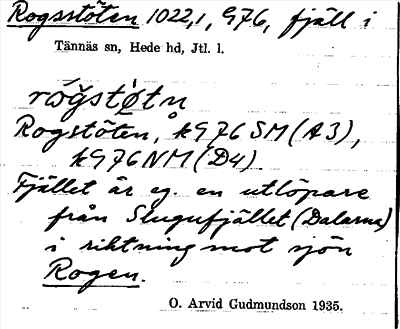 Rogsstöten 1022,1, G76, fjäll i
Tännäs sn, Hede hd, Jtl. l.
Rogstöten, kG76SM(A3),
kG76NM(D4).
Fjället är eg. en utlöpare
från Slugufjället (Dalarna)
i riktning mot sjön
Rogen.
O. Arvid Gudmundson 1935.